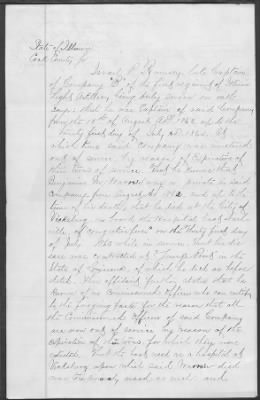 State of Illinois
Cook County ss
Isaac P. Rumsey late Captain
of Company "B" of the first regiment of Illinois
Light Artillery being duly sworn on oath
says that he was Captain of said Company
from the 15th of August A.D. 1862 until the
twenty first day of July A.D. 1864. At
which time said Company was mustered
out of service by reason of expiration of
their term of service. That he knows that
Benjamin W. was a private in said
company August 1862 and at the
time of his death, that he died at the City of
Vicksburg on board the Hospital boat
ville of congestive on the thirty first day
of July 1863 while in service. That his dis
ease was contracted at "Young's Point" in the
State of Louisiana, of which he died as before
stated. This affiant further states that he
knows of no Commissioned Officer who can certify
to the foregoing facts for the reason that all
the Commissioned Officers of said Company
are now out of service by reason of the
expiration of the term for which they were
enlisted. That the boat used as a hospital at
Vicksburg upon which said died
was frequently used as such and